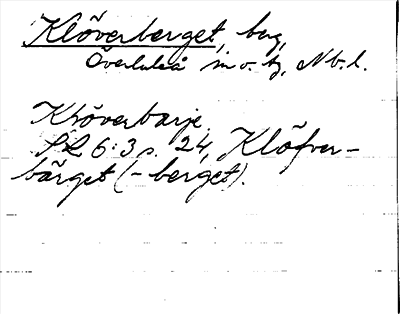 Klöverberget, berg,
Överluleå sn o. tg, Nb. l.
Klöverbarje
SL 6:3 s. 24, Klöfver-
bärget (-berget).